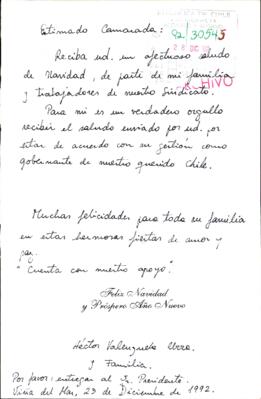 Estimado Camarada:
92/30545
28 DIC 92
ARCHIVO
Reciba ud. un afectuoso saludo
de Navidad, de parte de mi familia
y trabajadores de nuestro Sindicato.
Para mi es un verdadero orgullo
recibir el saludo enviado por ud. por
estar de acuerdo con su gestión como
gobernante de nuestro querido Chile.
Muchas felicidades para toda su familia
en estas hermosas fiestas de amor y
paz.
"Cuenta con nuestro apoyo".
Feliz Navidad
y Próspero Año Nuevo
Héctor Valenzuela
y Familia.
Por favor: entregar al Sr. Presidente.
Viña del Mar, 23 de Diciembre de 1992.